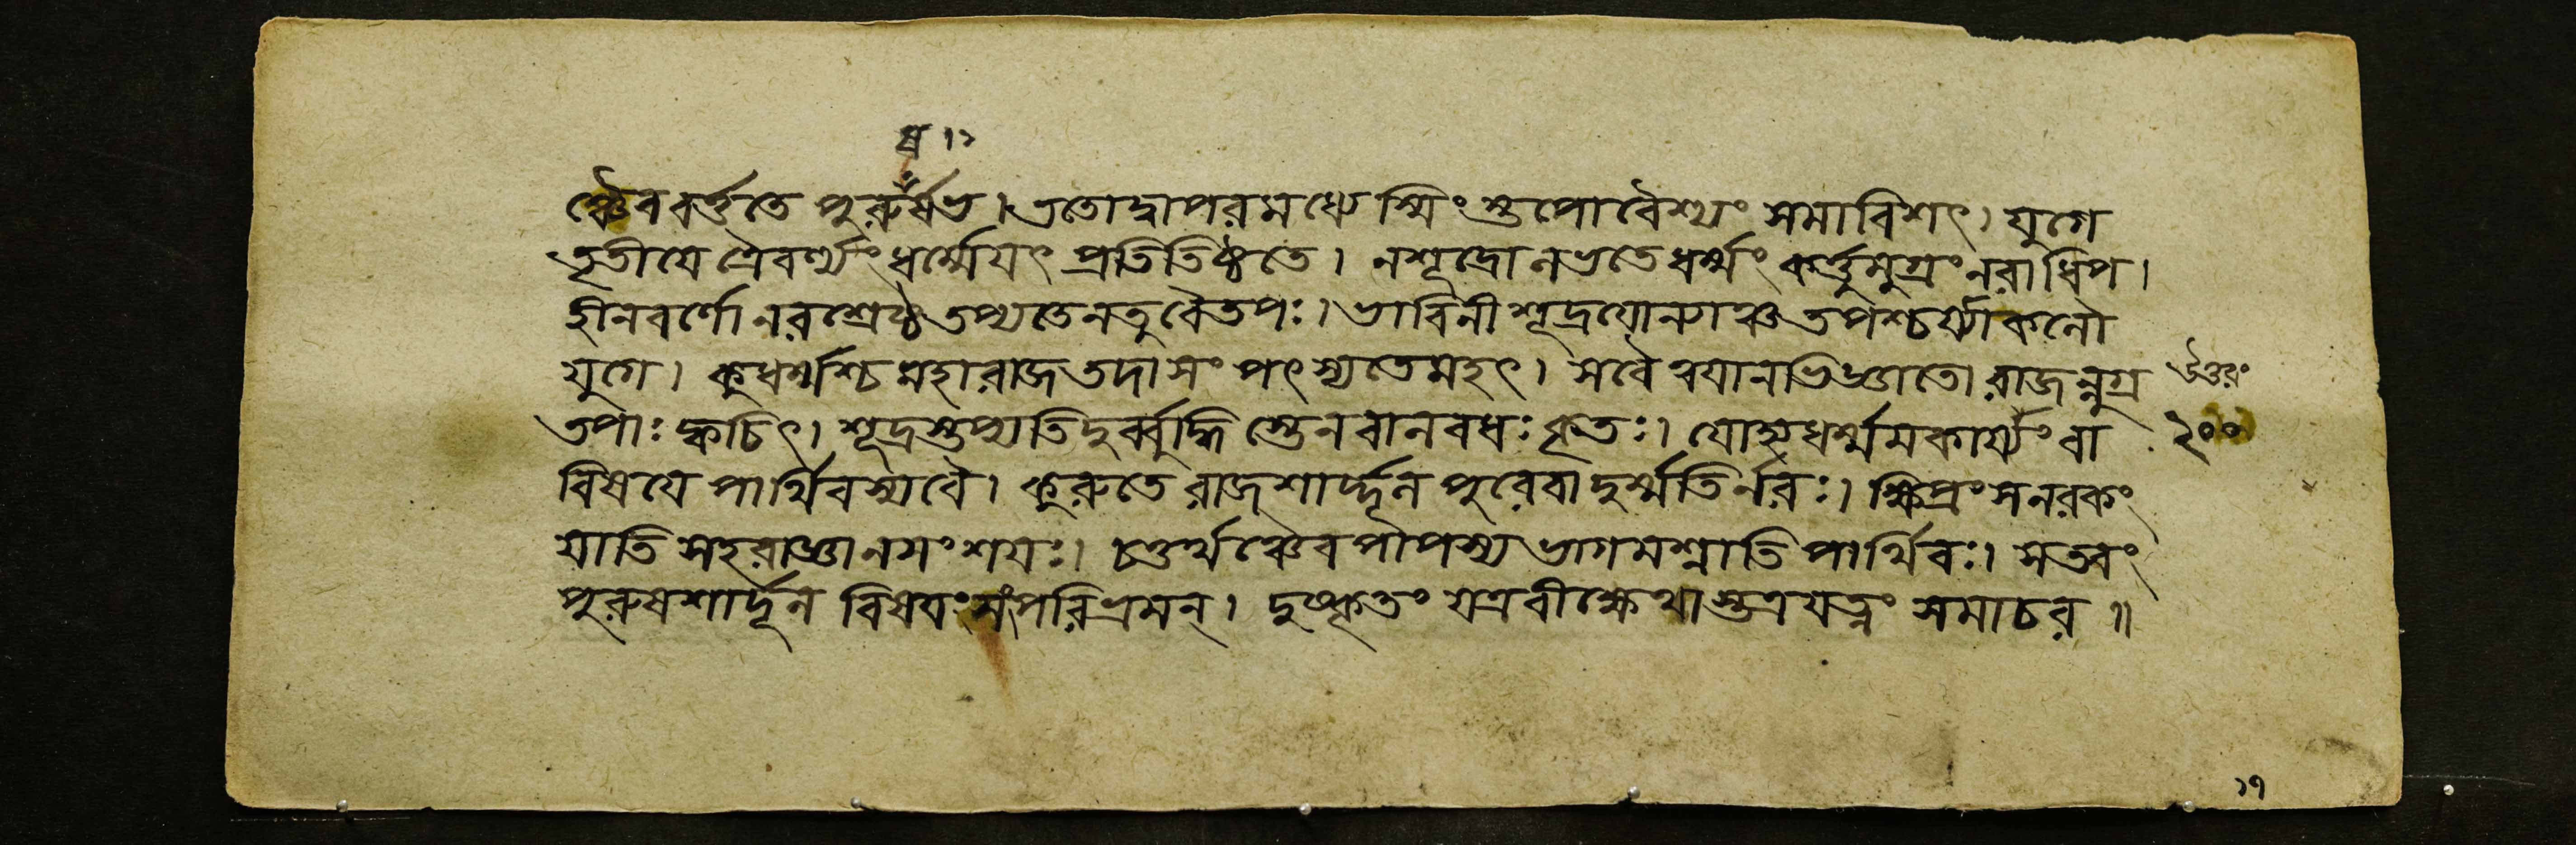 ষ ৷ ১
ঞ্চৈব বর্ত্ততে পুরুর্ষভ। এতো দ্বাপরমধ্যেস্মিং স্তপো বৈশ্যং সমাবিশৎ। যুগে
তৃতীয়ে ত্রৈবর্ণ্যং ধর্ম্মেযৎ প্রতিতিষ্ঠতে। ন শূদ্রো নভতে ধর্ম্মং কর্ত্তুমুগ্রং নরাধিপ।
হীনবর্ণো নরশ্রেষ্ঠ তপ্যতে নতু বৈ তপঃ। ভাবিনী শূদ্রযোন্যাঞ্চ তপশ্চর্য্যা কনৌ
যুগে। কুধর্ম্মশ্চ মহারাজ তদা সংপৎস্যতে মহৎ। সবৈ বযানভিজ্ঞাতো রাজন্নুগ্র
উত্তরং
তপাঃ ক্বচিৎ। শূদ্রস্তপ্যতি দুর্ব্বুদ্ধি স্তেন বানবধঃ কৃতঃ। যোহ্যধর্ম্মমকার্য্যং বা
২০০
বিষয়ে পার্থিবস্য বৈ। কুরুতে রাজশার্দ্দূন পুরে বা দুর্ম্মতির্নরঃ। ক্ষিপ্রং স নরকং
যাতি সহ রাজ্ঞা ন সংশযঃ। চতুর্থঞ্চৈব পাপস্য ভাগমশ্নাতি পার্থিবঃ। স ত্বং
পুরুষশার্দূন বিষযং সংপরিভ্রমন্। দুষ্কৃতং যত্র বীক্ষেথা স্তত্র যত্নং সমাচর ॥
১৭